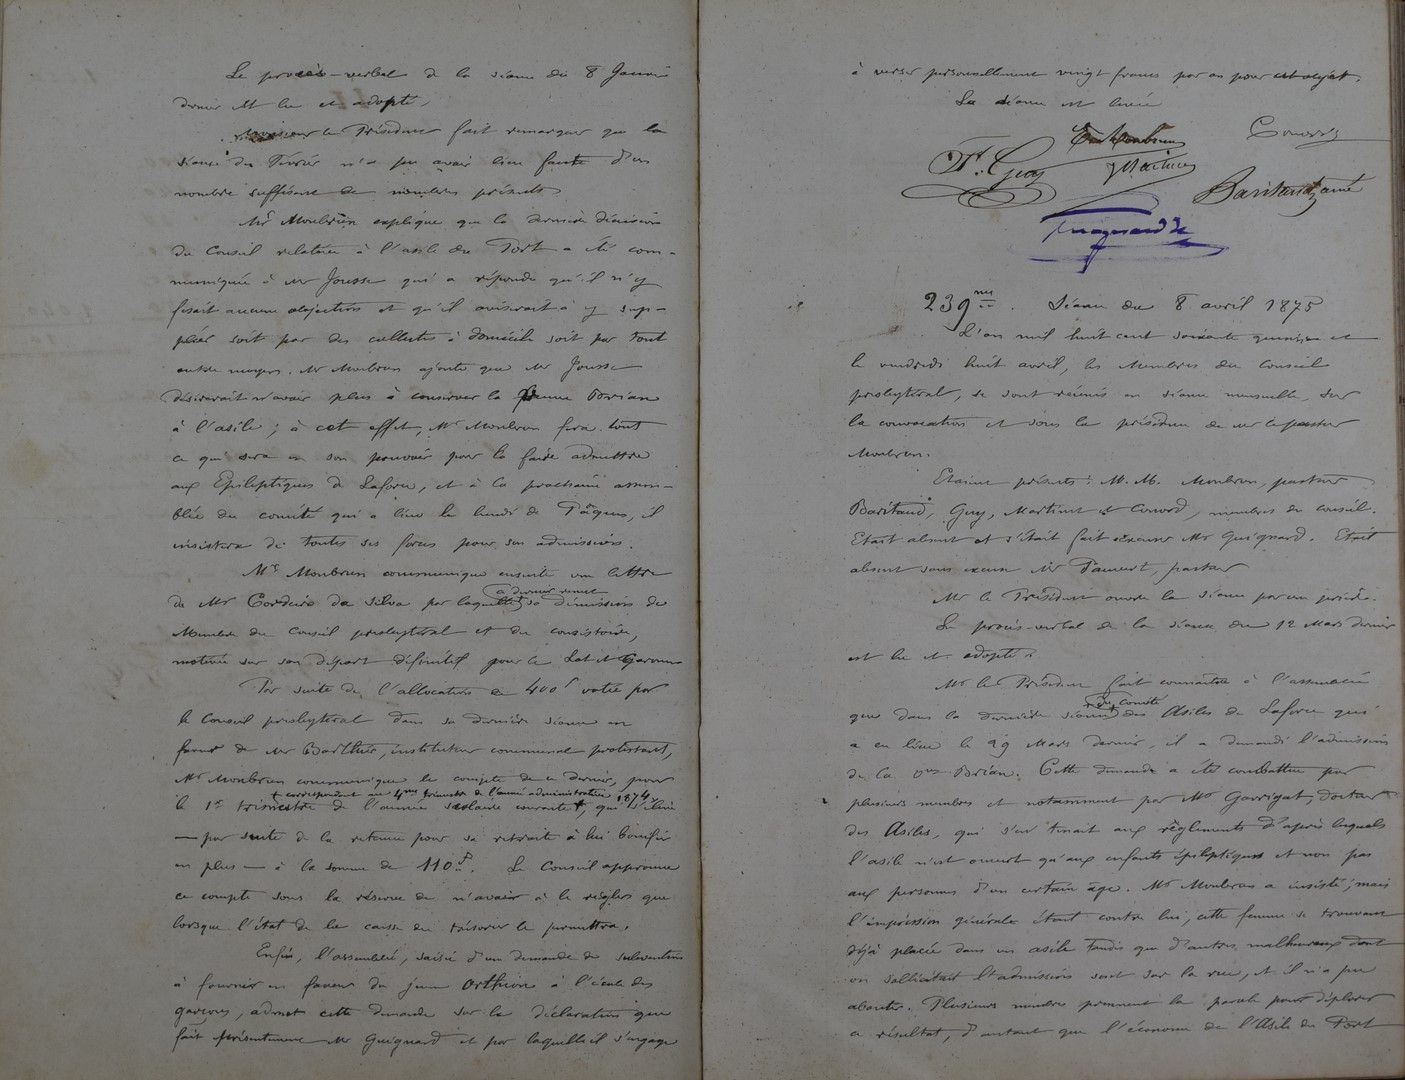 Le procès-verbal de la séance du 8 Janvier
dernier est lu et adopté.
Monsieur le Président fait remarquer que la
séance de Février n'a pu avoir lieu faute d'un
nombre suffisant de membres présents.
Mr Monbrun explique que la dernière décision
du Conseil relative à l'asile du Port a été com-
muniquée à Mr Jousse qui a répondu qu'il n'y
faisait aucune objection et qu'il aviserait à y sup-
pléer soit par des collectes à domicile soit par tout
autre moyen. Mr Monbrun ajoute que Mr Jousse
désirerait n'avoir plus à conserver la femme Brian
à l'asile ; à cet effet, Mr Monbrun fera tout
ce qui sera en son pouvoir pour la faire admettre
aux Epileptiques de Laforce, et à la prochaine assem-
blée du comité qui a lieu le lundi de Pâques, il
insistera de toutes ses forces pour son admission.
Mr Monbrun communique ensuite une lettre
de Mr Cordeiro da Silva par laquelle ce dernier remet sa démission de
Membre du Conseil presbytéral et du consistoire,
motivée sur son départ définitif pour le Lot et Garonne
Par suite de l'allocation de 400f votée par
le Conseil presbytéral dans sa dernière séance en
faveur de Mr Barthès, instituteur communal protestant,
Mr Monbrun communique le compte de ce dernier, pour
le 1er trimestre de l'année scolaire courante, correspondant au 4me trimestre de l'année administrative 1874, qui s'élève
— par suite de la retenue pour sa retraite à lui bonifier
en plus — à la somme de 110f. Le Conseil approuve
ce compte sous la réserve de n'avoir à le régler que
lorsque l'état de la caisse du trésorier le permettra.
Enfin, l'assemblée, saisie d'une demande de subvention
à fournir en faveur du jeune Orthion à l'école des
garçons, admet cette demande sur la déclaration que
fait présentement Mr Guignard et par laquelle il s'engage
à verser personnellement vingt francs par an pour cet objet.
La séance est levée
Monbrun
Conord
Ft. Guy
Martinet
Baritaud aîné
Guignard
239me. Séance du 8 avril 1875
L'an mil huit cent soixante quinze et
le vendredi huit avril, les Membres du Conseil
presbytéral, se sont réunis en séance mensuelle, sur
la convocation et sous la présidence de Mr le pasteur
Monbrun.
Etaient présents : M. M. Monbrun, pasteur
Baritaud, Guy, Martinet et Conord, membres du conseil.
Etait absent et s'était fait excuser Mr Guignard. Etait
absent sans excuse Mr Paumert, pasteur
Mr le Président ouvre la séance par une prière.
Le procès-verbal de la séance du 12 Mars dernier
est lu et adopté.
Mr le Président fait connaître à l'assemblée
que dans la dernière séance du Comité des Asiles de Laforce qui
a eu lieu le 29 Mars dernier, il a demandé l'admission
de la Vve Brian. Cette demande a été combattue par
plusieurs membres et notamment par Mr Garrigat, docteur
des Asiles, qui s'en tenait aux règlements d'après lesquels
l'asile n'est ouvert qu'aux enfants épileptiques et non pas
aux personnes d'un certain âge. Mr Monbrun a insisté ; mais
l'impression générale étant contre lui, cette femme se trouvant
déjà placée dans un asile tandis que d'autres malheureux dont
on sollicitait l'admission sont sur la rue, et il n'a pu
aboutir. Plusieurs membres prennent la parole pour déplorer
ce résultat, d'autant que l'économe de l'Asile du Port